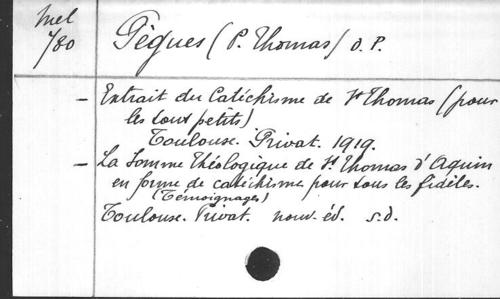 Mel
780
Pègues (P. Thomas) O. P.
- Extrait du Catéchisme de St Thomas (pour
les tout petits)
Toulouse. Privat. 1919.
- La Somme théologique de St. Thomas d'Aquin
en forme de catéchisme pour tous les fidèles.
(Témoignages)
Toulouse. Privat. nouv. éd. s.d.